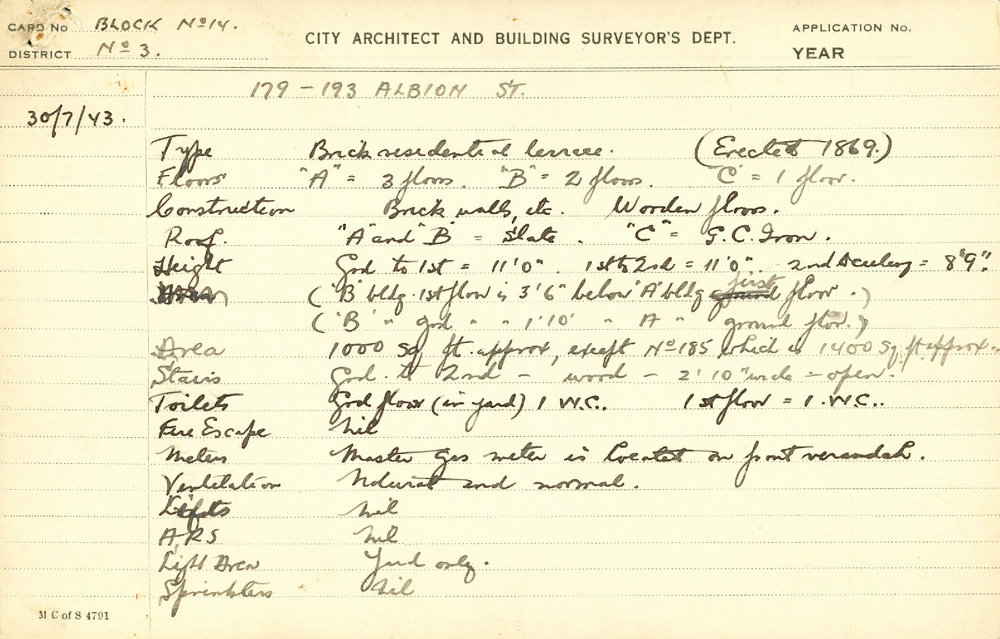 CARD No BLOCK No 14.
CITY ARCHITECT AND BUILDING SURVEYOR'S DEPT.
APPLICATION No.
DISTRICT No 3.
YEAR
179 – 193 ALBION ST.
30/7/43.
Type Brick residential terrace. (Erected 1869.)
Floors "A" = 3 floors. "B" = 2 floors. "C" = 1 floor.
Construction Brick walls, etc. Wooden floors.
Roof. "A" and "B" = Slate. "C" = G.C. Iron.
Height Grd to 1st = 11'0". 1st to 2nd = 11'0". 2nd to ceiling = 8'9".
("B" bldg. 1st floor is 3'6" below "A" bldg first floor.)
("B" " grd " " 1'10" " A " ground floor.)
Area 1000 sq ft. approx, except No 185 which is 1400 sq. ft approx.
Stairs Grd. to 2nd – wood – 2'10" wide – open.
Toilets Grd floor (in yard) 1 W.C.. 1st floor = 1. W.C..
Fire Escape Nil
Meters Master gas meter is located on front verandah.
Ventilation Natural and normal.
Lifts Nil
A.R.S Nil
Light Area Yard only.
Sprinklers Nil
M C of S 4791